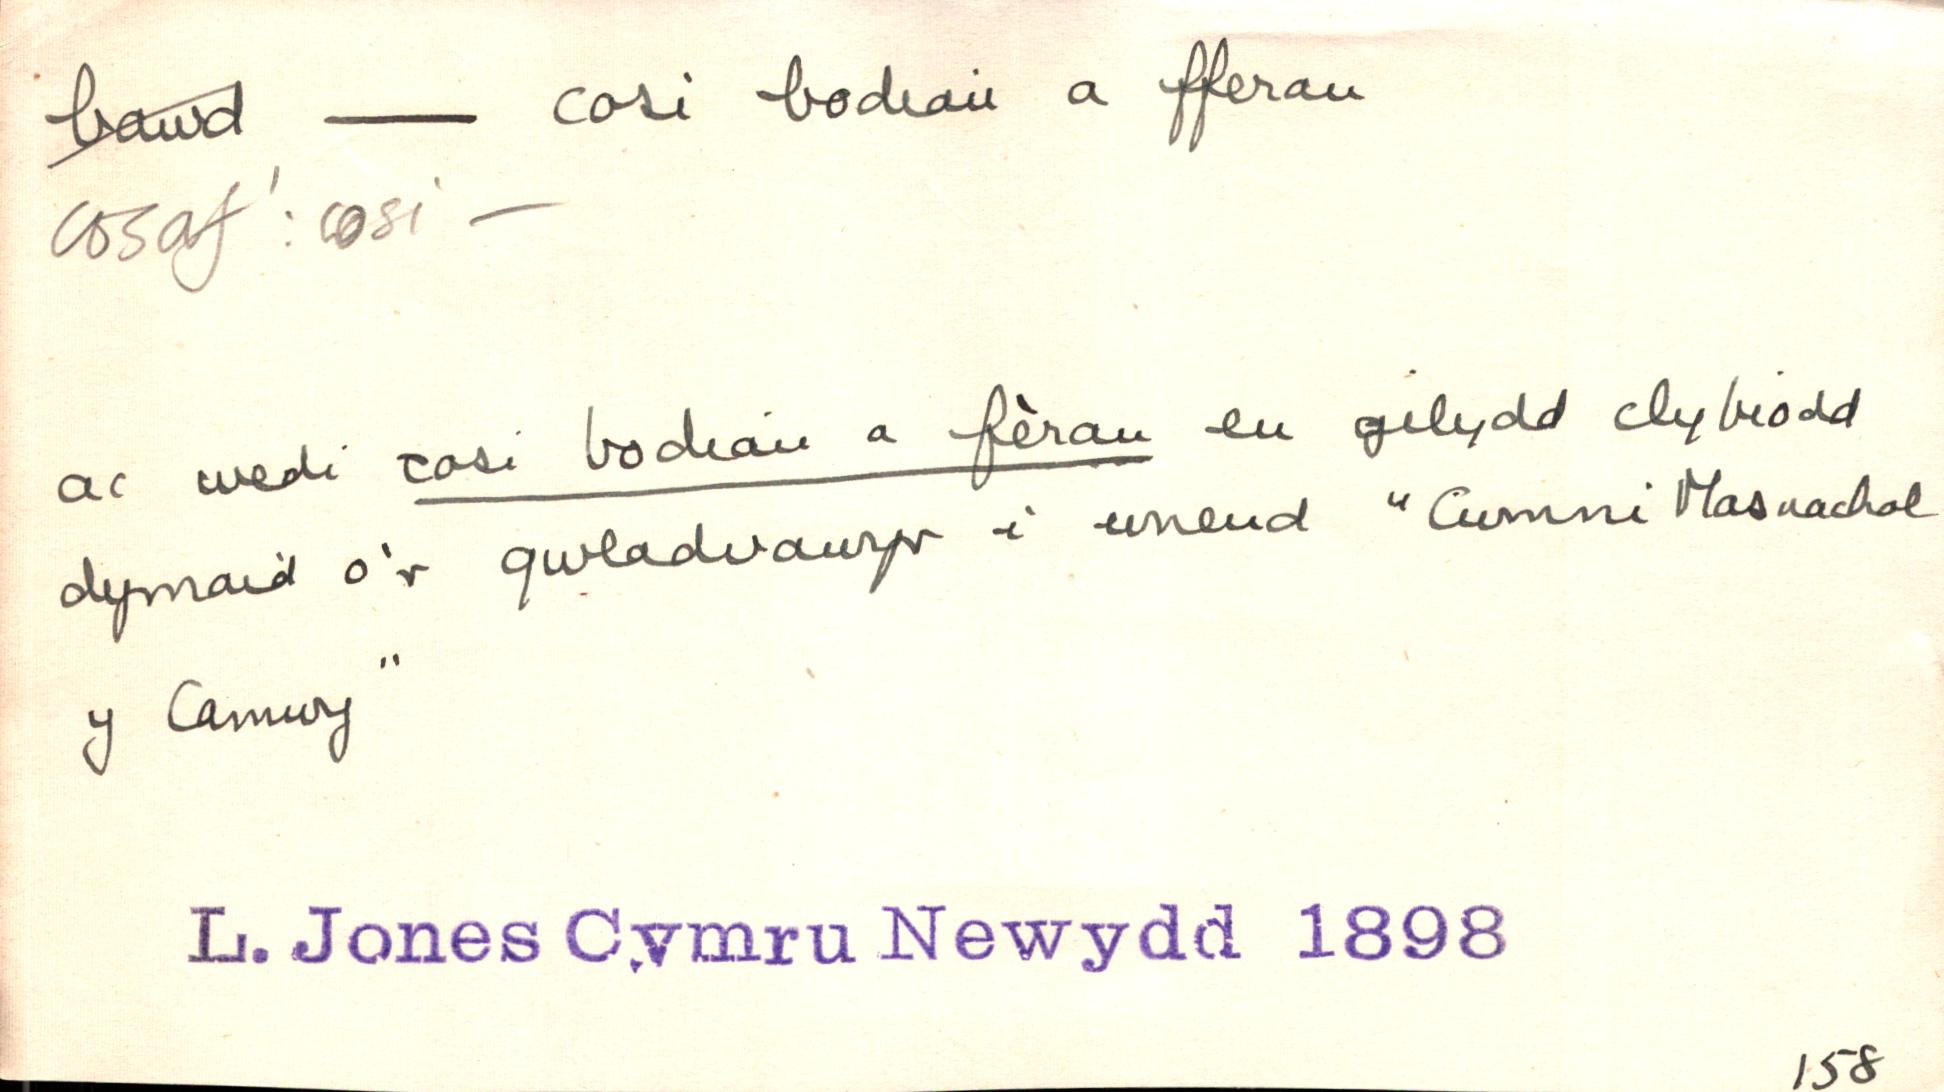 bawd — cosi bodiau a fferau
cosaf¹: cosi —
ac wedi cosi bodiau a fèrau eu gilydd clybiodd
dyrnaid o'r gwladvawyr i wneud "Cwmni Masnachol
y Camwy"
L. Jones Cymru Newydd 1898
158